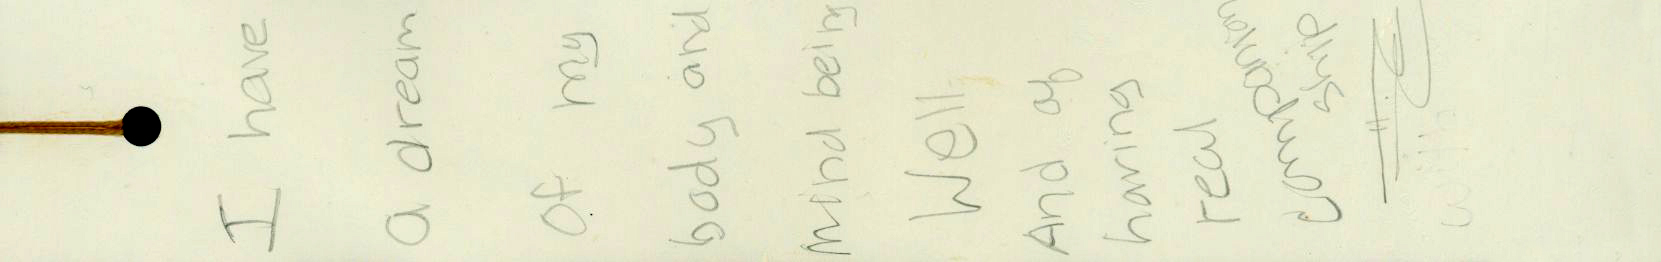 I have
a dream
of my
body and
mind being
Well
And of
having
real
companion
ship